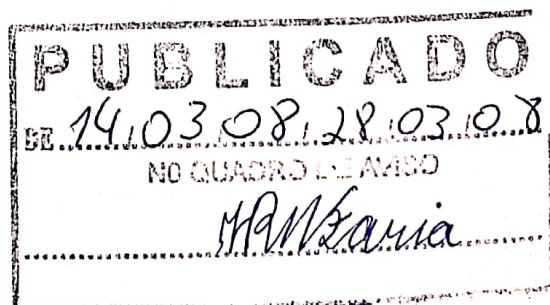 PUBLICADO
DE 14/03/08, 28/03/08
NO QUADRO DE AVISO